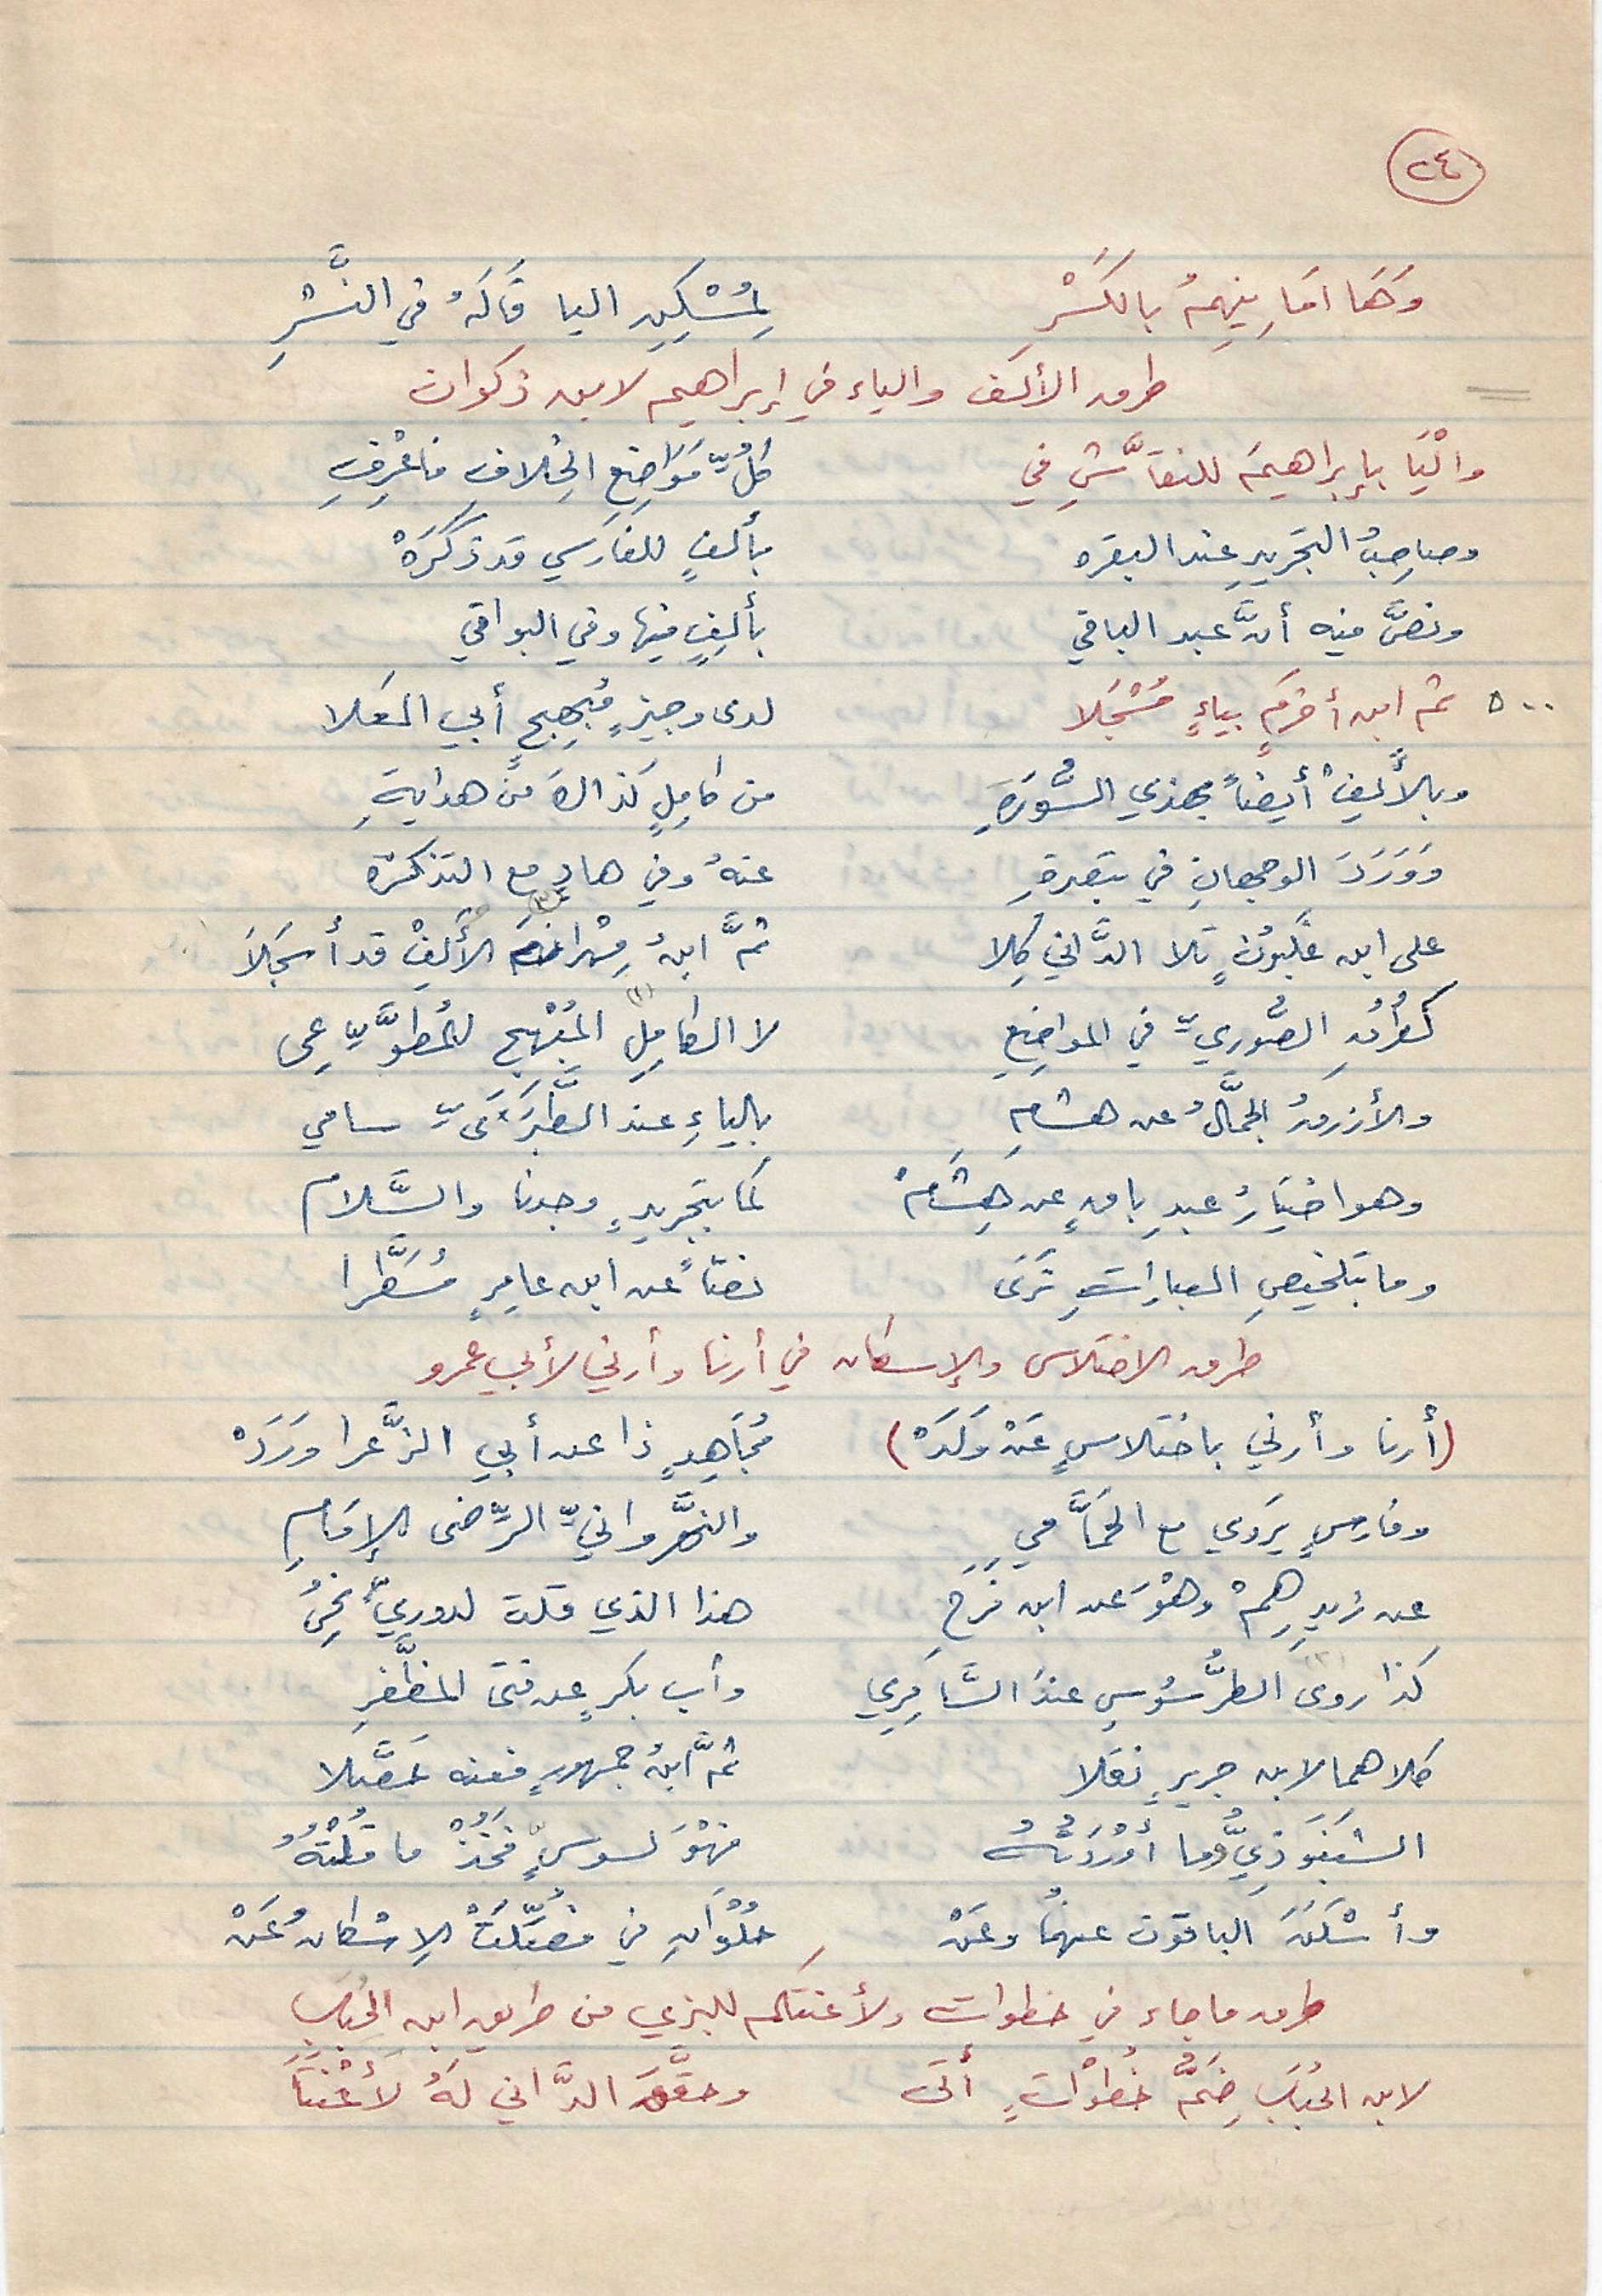 ٢٤
وَهَا امَانِيهِمُ بالكَسْرِ لِمُسْكِنِ اليا قَالَهُ في النَّشْرِ
طرق الألف والياء في إبراهيم لابن ذكوان
والْيَا بإبراهيمَ للنقَّاشِ في كلِّ مَوَاضِعِ الخِلافِ فاعْرِفِ
وصاحِبُ التجَريدِ عند البقره بألفٍ للفارسي قد ذَكَرَهْ
ونصَّ فيه أنَّ عبد الباقي بألِفٍ فيها وفي البواقي
٥٠٠ ثم ابن أخرَمٍ بياءٍ مُسْجَلا لدى وجيزٍ مُبهِجٍ أبي العَلا
وبالألِفْ أيضاً بهذي السُّورَةِ من كامِلٍ كذاكَ من هدايةِ
وَوَرَدَ الوجهانِ في تبصرةِ عنهُ وفي هادٍ مع التذكرة
على ابن غَلبونٍ تَلا الدَّاني كِلا ثمَّ ابنُ مِهرانَ الألِفْ قد أسجَلاَ
كطُرُقِ الصُّوريِّ في المواضِعِ لا الكامِلِ المُبْهِجِ للمُطوِّعي
والأزرقُ الجمَّالُ عن هشامِ بالياءِ عند الطَّبَرَيِّ سامي
وهو اختيَارُ عبدِ باقٍ عن هِشَامْ كما بتجريدٍ وجدنا والسَّلام
وما بتَلخيصِ العباراتِ تَرَى نصّاً عن ابن عامِرٍ مُسَطَّرا
طرق الاختلاس والإسكان في أرنا وأرني لأبي عمرو
(أرنا وأرني باختلاسٍ عَنْ وَلَدْ) مُجَاهِدٍ ذا عن أبي الزَّعرا وَرَدْ
وفارسٍ يَروي مع الحَمَّامي والنهَّروانيِّ الرِّضى الإمَامِ
عن زيدِهِمْ وهْوَ عن ابن فَرَحِ هذا الذي قلت لدوريٍّ
كذا روى الطرُّسُوسِ عندَ السَّامِرِي وأب بكرٍ عن فتى المظَّفرِ
كلاهما لابن جريرٍ نقَلا ثمَّ ابنُ جمهورٍ فعنه حَصَّلا
الشنَبَوذِيُّ وما أوْرَدتُهُ فهْوَ لسوسٍّ فَخُذْ ما قلْتُهُ
وأسْكَنَ الباقون عنهُما وعَنْ حُلْوَانِ في فصِّلَتْ الإسْكانُ عَنْ
طرق ما جاء في خطوات ولأعنتكم للبزي من طريق ابن الحُبَابِ
لابن الحُبَابِ ضَمُّ خُطوَاتٍ أتَى وحقَّقَ الدَّاني لَهُ لأعْنَتَا